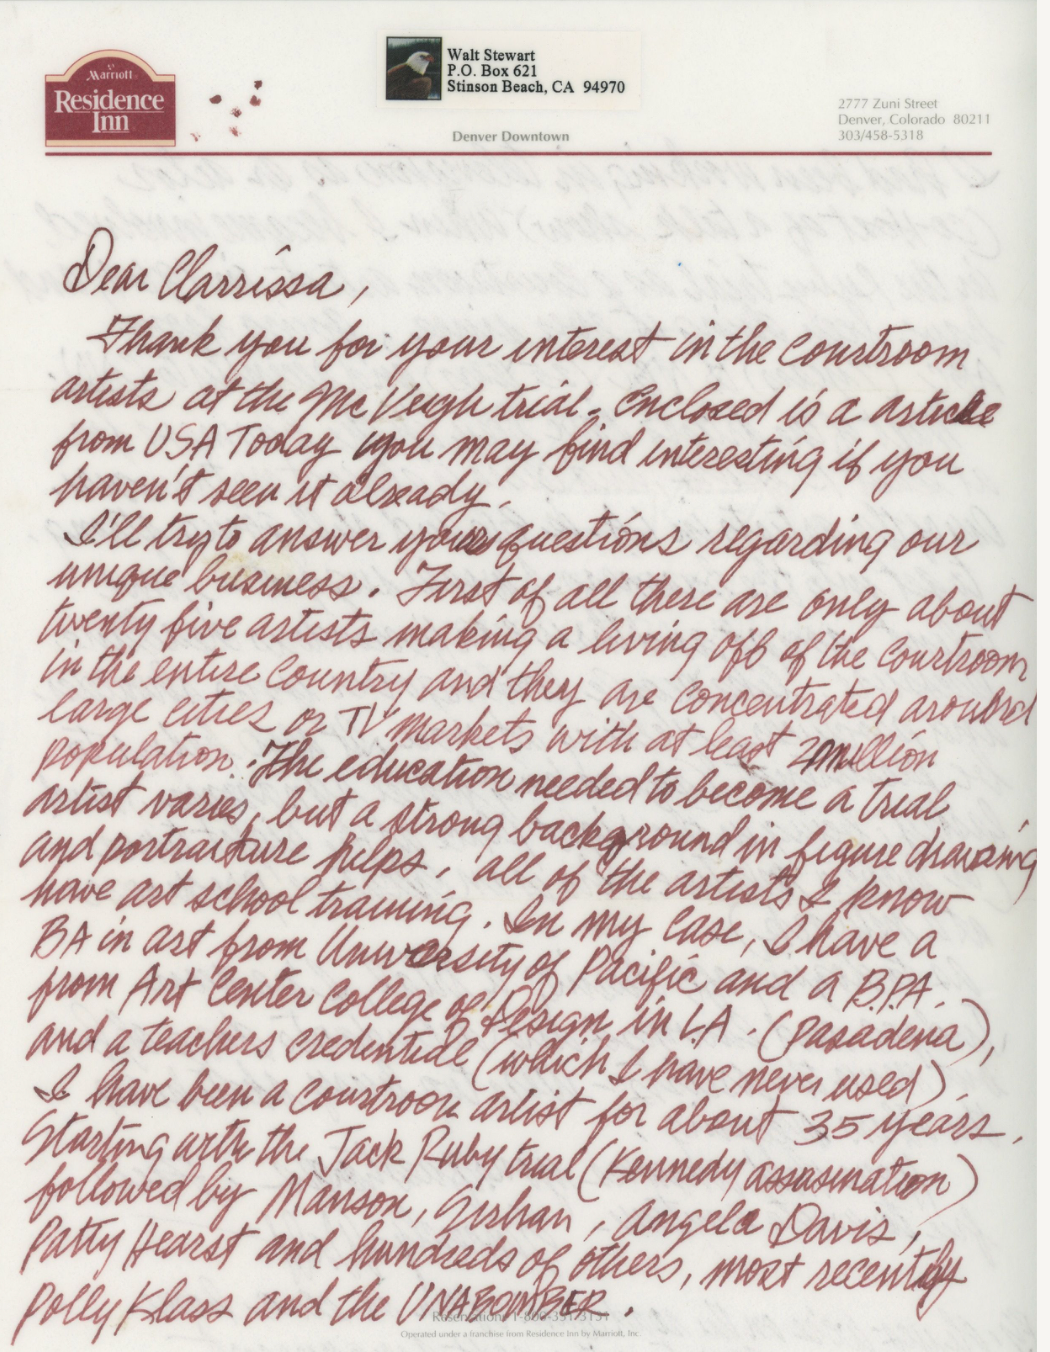 Marriott
Residence
Inn
Walt Stewart
P.O. Box 621
Stinson Beach, CA 94970
Denver Downtown
2777 Zuni Street
Denver, Colorado 80211
303/458-5318
Dear Clarrissa,
Thank you for your interest in the courtroom
artists at the McVeigh trial. Enclosed is a article
from USA Today you may find interesting if you
haven't seen it already.
I'll try to answer your questions regarding our
unique business. First of all there are only about
twenty five artists making a living off of the courtroom
in the entire country and they are concentrated around
large cities or TV markets with at least 2 million
population. The education needed to become a trial
artist varies, but a strong background in figure drawing
and portraiture helps, all of the artists I know
have art school training. In my case, I have a
BA in art from University of Pacific and a B.P.A.
from Art Center College of Design in L.A. (Pasadena),
and a teachers credential (which I have never used)
I have been a courtroom artist for about 35 years,
Starting with the Jack Ruby trial (Kennedy assasination)
followed by Manson, Sirhan, Angela Davis,
Patty Hearst and hundreds of others, most recently
Polly Klass and the UNABOMBER.
Reservations 1-800-331-3131
Operated under a franchise from Residence Inn by Marriott, Inc.